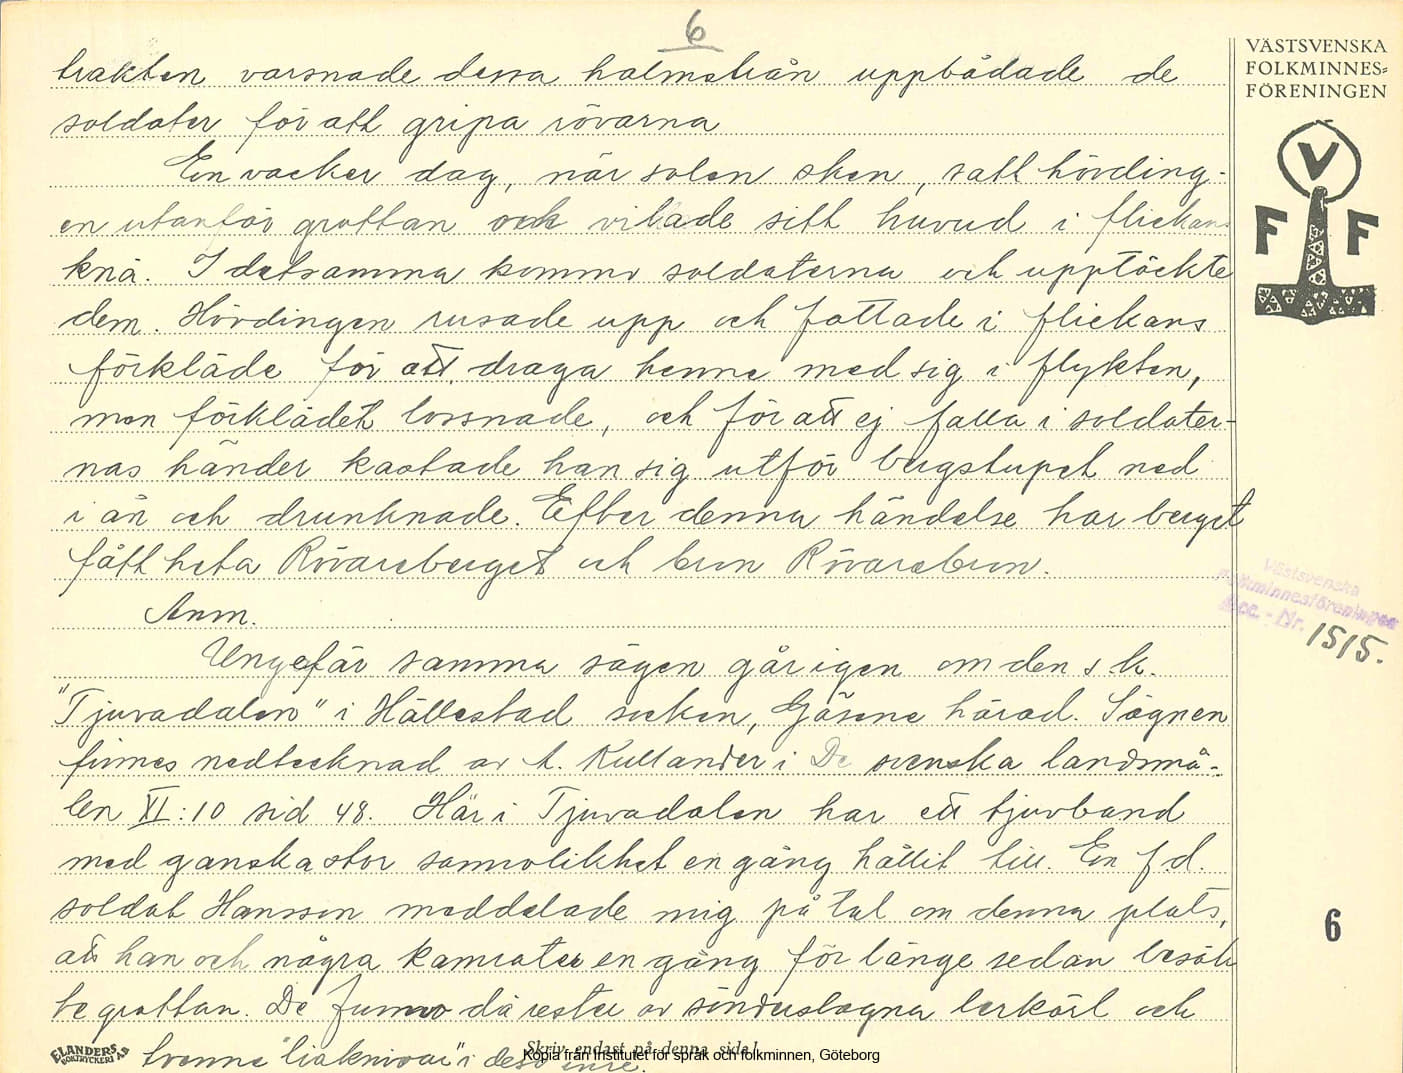 6
VÄSTSVENSKA
FOLKMINNES=
FÖRENINGEN
V
F F
trakten varsnade dessa halmstrån uppbådade de
soldater för att gripa rövarna
En vacker dag, när solen sken, satt hövding-
en utanför grottan och vilade sitt huvud i flickans
knä. I detsamma kommo soldaterna och upptäckte
dem. Hövdingen rusade upp och fattade i flickans
förkläde för att draga henne med sig i flykten,
men förklädet lossnade, och för att ej falla i soldater-
nas händer kastade han sig utför bergstupet ned
i ån och drunknade. Efter denna händelse har berget
fått heta Rövareberget och bron Rövarebron.
Anm.
Ungefär samma sägen går igen om den s.k.
"Tjuvadalen" i Hällestad socken, Gäsene härad. Sägnen
finnes nedtecknad av A. Kullander i De svenska landsmå-
len XI:10 sid 48. Här i Tjuvadalen har ett tjuvband
med ganska stor sannolikhet en gång hållit till. En f.d.
soldat Hansson meddelade mig på tal om denna plats,
att han och några kamrater en gång för länge sedan besök-
te grottan. De funno då rester av sönderslagna lerkärl och
tvenne "liaknivar" i dess inre.
Västsvenska
Folkminnesföreningen
Acc.-Nr. 1515.
6
ELANDERS
BOKTRYCKERI AB
Skriv endast på denna sida!
Kopia från Institutet för språk och folkminnen, Göteborg